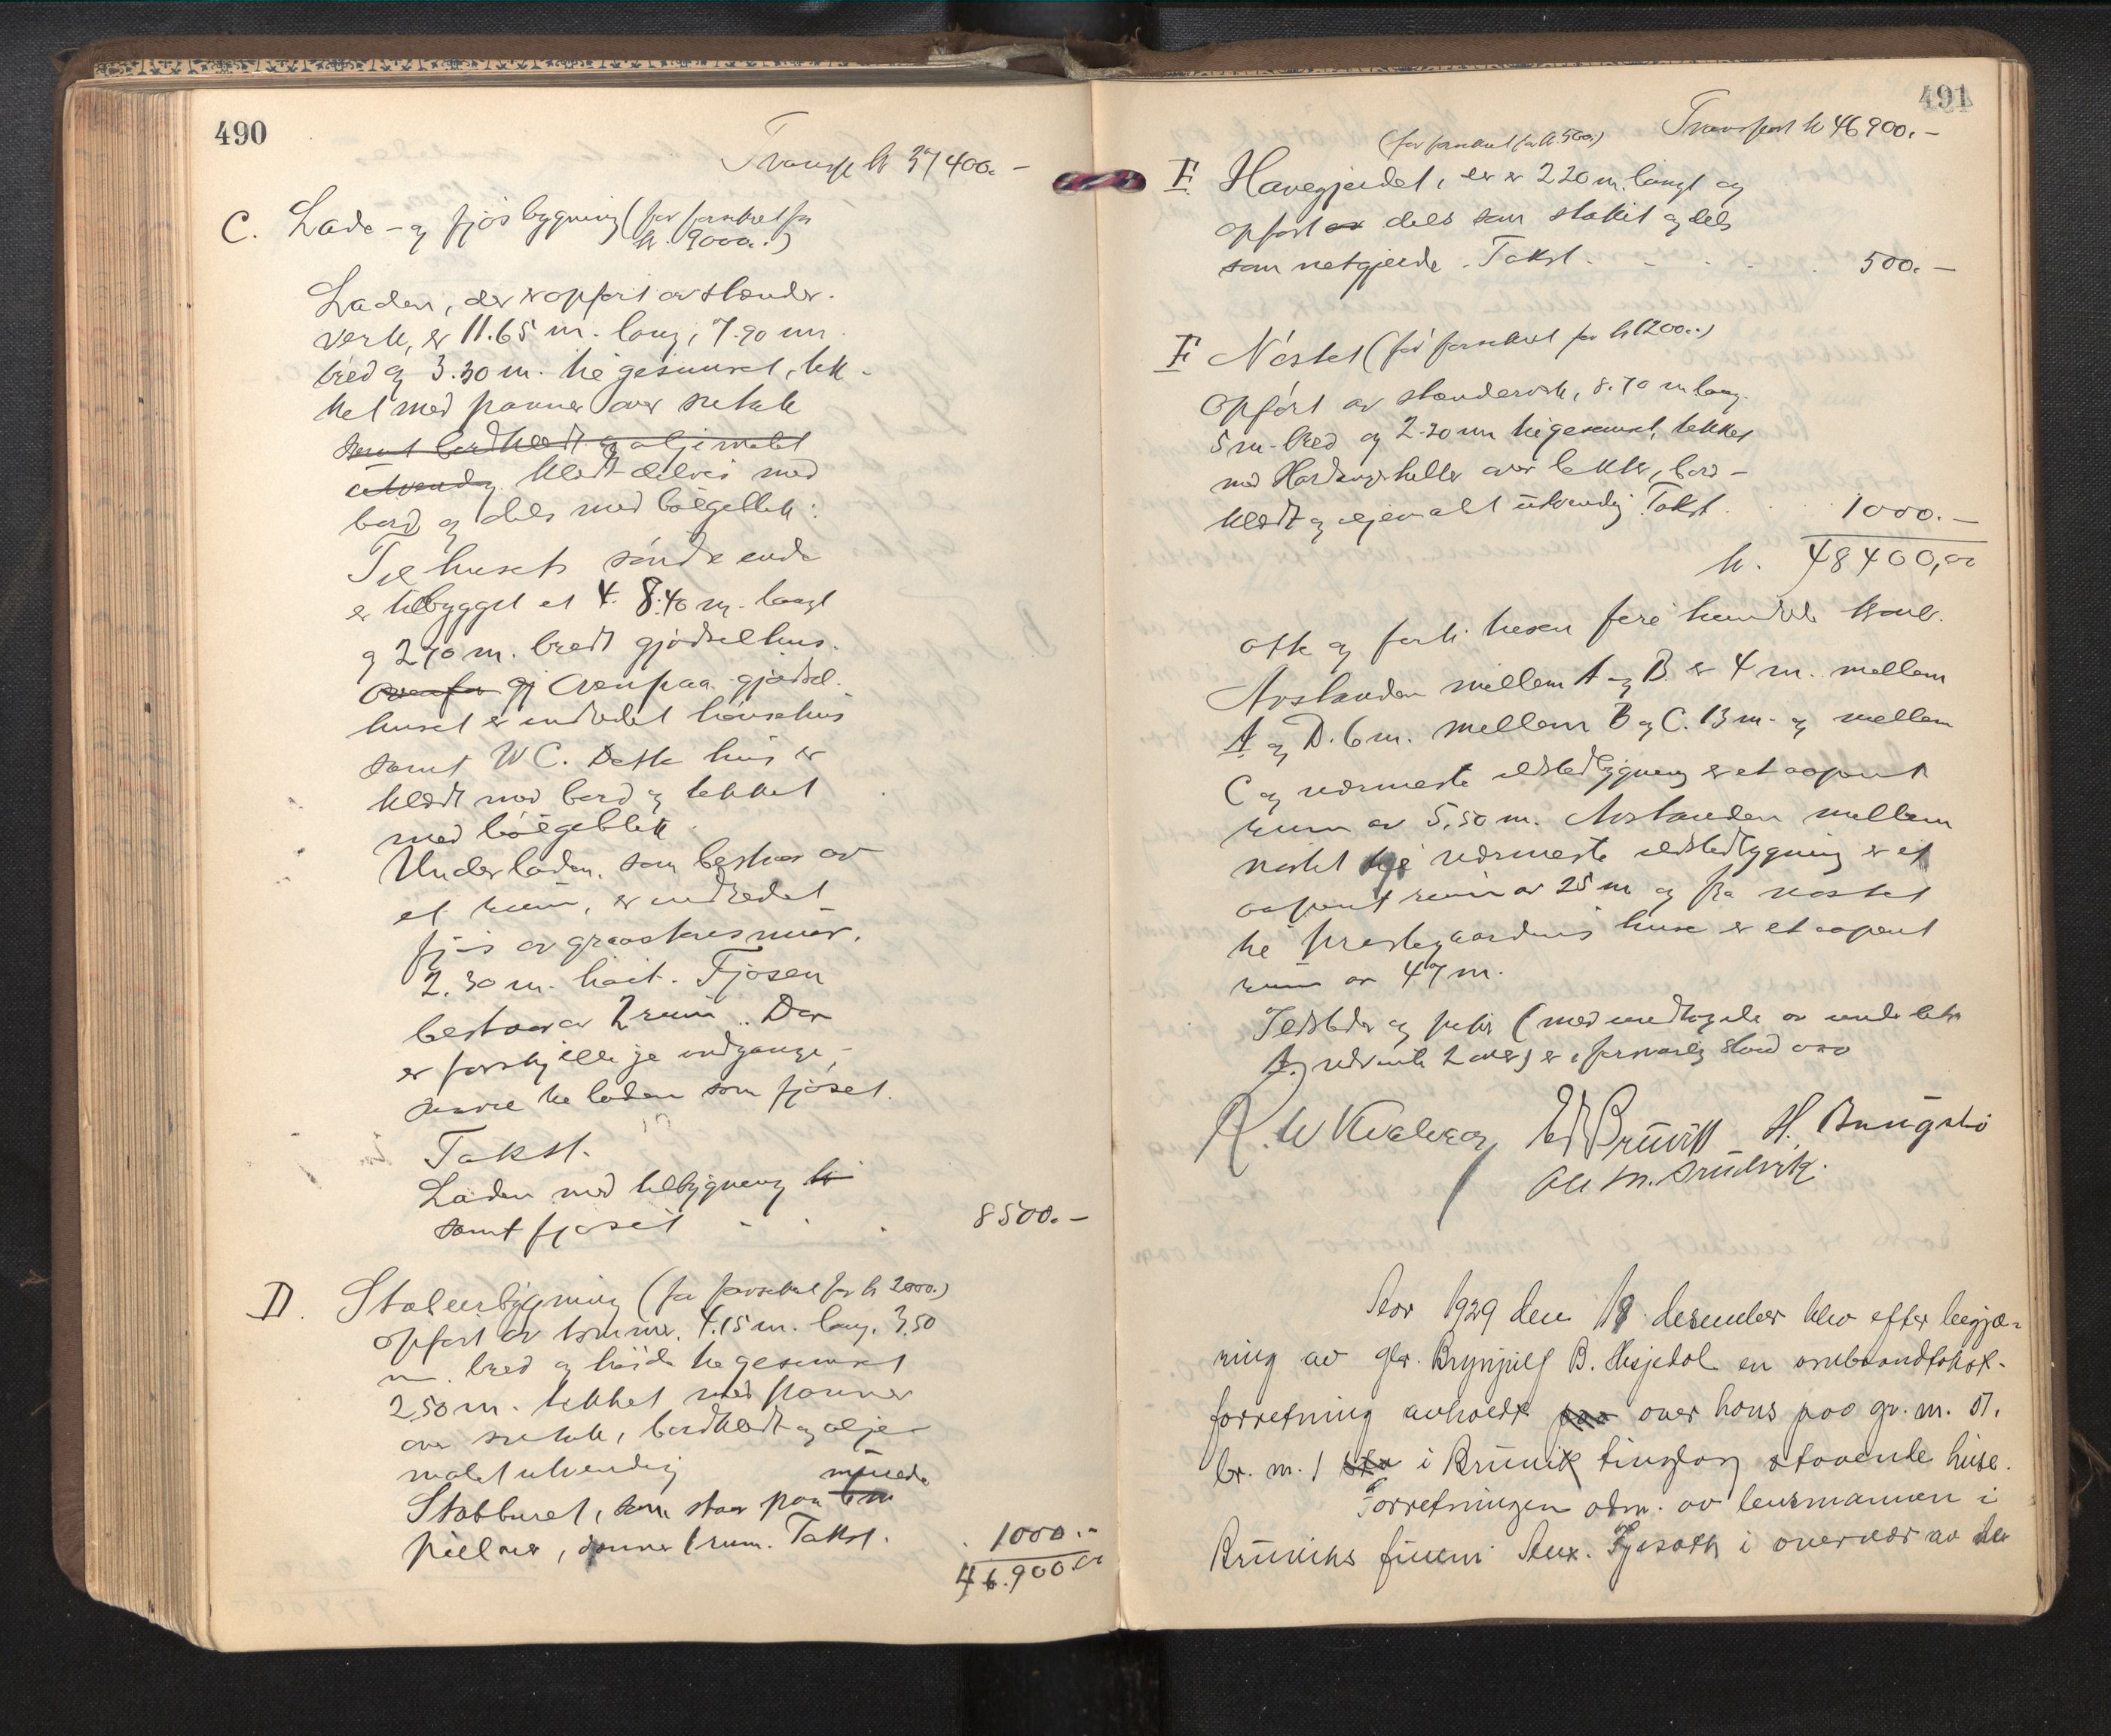 490
Transp kr 37400.-
C. Lade- og fjösbygning (før forsikret for
kr. 9000.-)
Laden, der er opført av stænder-
verk, er 11.65 m. lang, 7.90 m
bred og 3.30 m. til gesimset, tek-
ket med panner over sutak
samt bordklædt og oljemalt
utvendig klædt delvis med
bord og dels med bølgeblik.
Til husets søndre ende
er tilbygget et 8.40 m. langt
og 2.70 m. bredt gjødselhus.
Ovenfor gj Ovenpaa gjødsel-
huset er indredet hønsehus
samt WC. Dette hus er
klædt med bord og tekket
med bølgeblik.
Under laden, som bestaar av
et rum, er indredet
fjös av graastensmur,
2.30 m. høit. Fjösen
bestaar av 2 rum. Der
er forskjellige indgange,
saavel til laden som fjöset.
Takst.
Laden med tilbygning kr
samt fjöset . . . 8500.-
D. Stabursbygning (før forsikret for kr 2000.)
opført av tømmer, 4.15 m. lang, 3.50
m. bred og høide til gesimset
2.50 m. tekket med panner
over sutak, bordklædt og olje-
malt utvendig
murede
Stabburet, som staar paa
pillarer, danner 1 rum. Takst. . 1000.-
46.900.00
491
Transport kr 46900.-
(før forsikret for kr. 500.)
E Havegjerdet, der er 220 m. langt og
opført dels som stakit og dels
som netgjerde. Takst. . . . . 500.-
F Nöstet (før forsikret for kr 1200.-)
Opført av stænderverk, 8.70 m lang
5 m. bred og 2.20 m til gesimset, tekket
med Hardangerheller over lekter, bord-
klædt og oljemalt utvendig Takst. . . 1000.-
kr. 48400,00
otte og førti tusen fire hundrede kroner.
Avstanden mellem A og B er 4 m. mellem
A og D. 6 m. mellem B og C. 13 m. og mellem
C og nærmeste ildstedbygning er et aapent
rum av 5.50 m. Avstanden mellem
nöstet og nærmeste ildstedbygning er et
aapent rum av 25 m og fra nöstet
til prestegaardens huse er et aapent
rum av 47 m.
Ildsteder og piper (med undtagelse av under litr
A. nævnte 2 ovner) er i forsvarlig stand
Ed Bruvik
Ole M. Bruvik.
Aar 1929 den 18 desember blev efter begjæ-
ring av gbr. Brynjulf B. Hisjedal en ombrandtakst-
forretning avholdt paa over hans paa gr. nr. 57,
br. nr. 1 i Bruvik tinglag staaende huse.
Forretningen adm. av lensmannen i
Bruviks ved i overvær av de